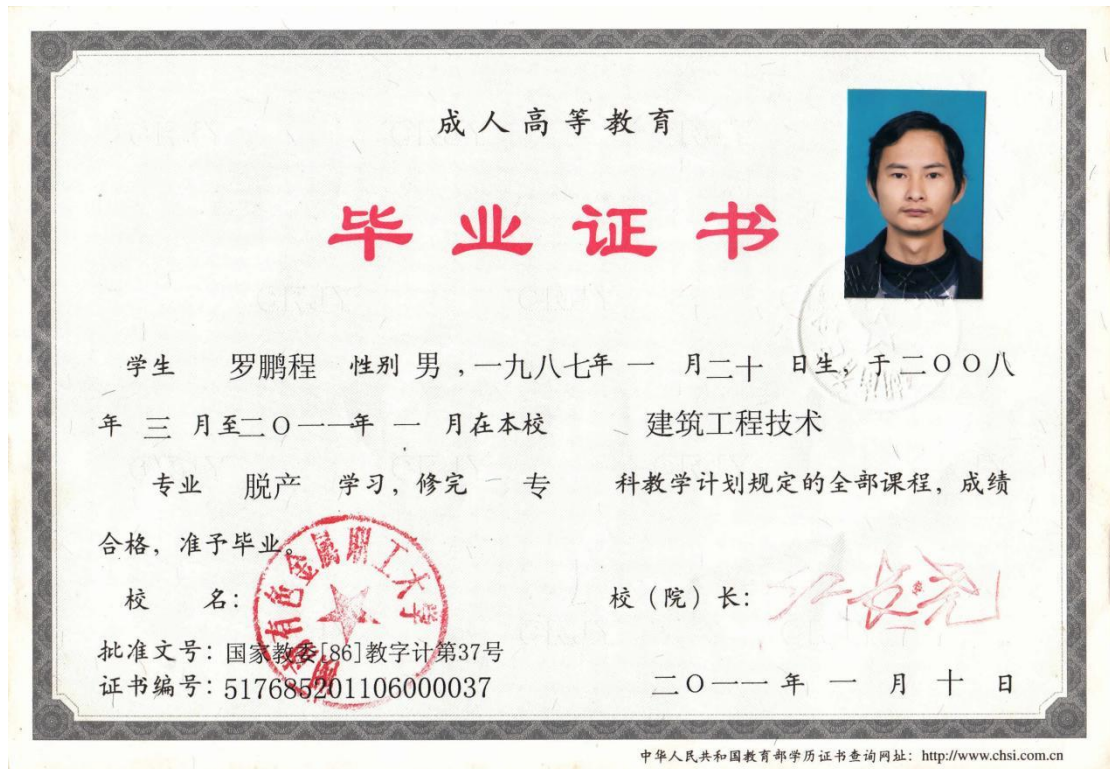 成人高等教育
毕业证书
学生 罗鹏程 性别 男，一九八七年 一 月二十 日生，于二〇〇八
年 三 月至二〇一一年 一 月在本校 建筑工程技术
专业 脱产 学习，修完 专 科教学计划规定的全部课程，成绩
合格，准予毕业。
校 名： 有色金属职工大学
校（院）长：
批准文号：国家教委[86]教字计第37号
证书编号：517685201106000037
二〇一一年 一 月 十 日
中华人民共和国教育部学历证书查询网址：http://www.chsi.com.cn